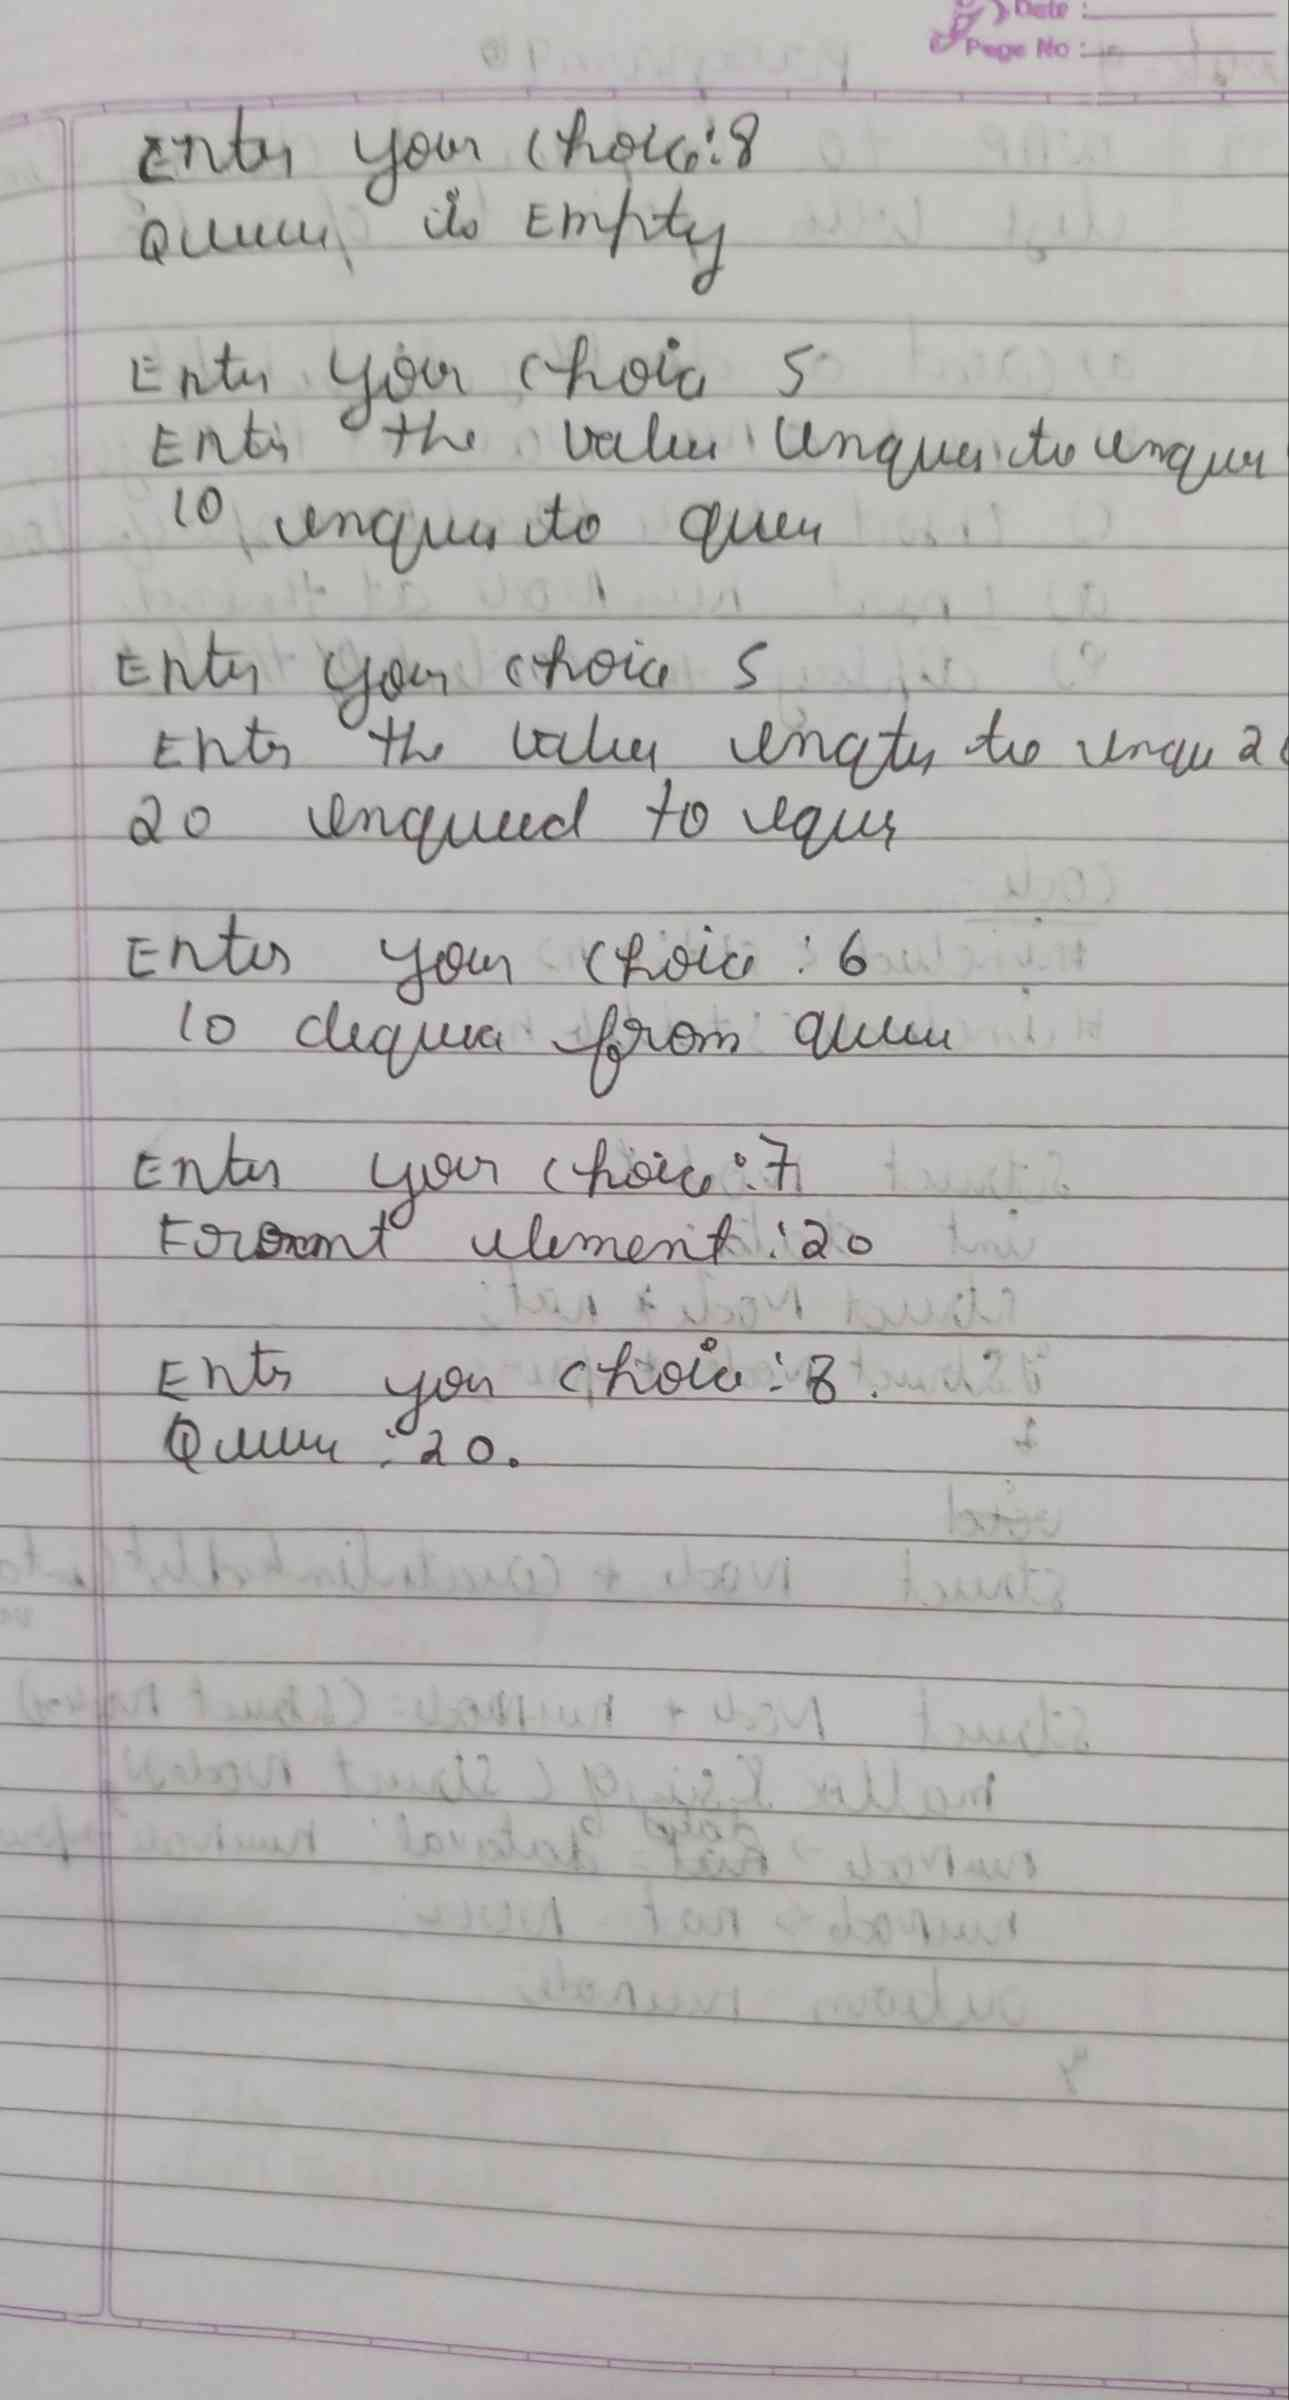 Date :
Page No :
Enter your choice: 8
Queue is Empty
Enter your choice 5
Enter the value enqueue to enqueue
10 enqueue to queue
Enter your choice 5
Enter the value to enqueue 20
20 enqueued to
Enter your choice : 6
10 dequeue from queue
Enter your choice : 7
Front element : 20
Enter you choice : 8.
Queue : 20.